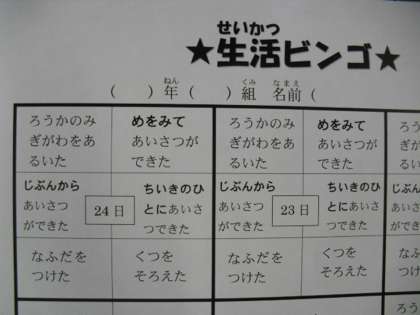 せいかつ
★生活ビンゴ★
ねん くみ なまえ
(　　)年(　　)組 名前(
ろうかのみ
ぎがわをあ
るいた
めをみて
あいさつが
できた
じぶんから
あいさつ
ができた
24日
ちいきのひ
とにあいさ
つできた
なふだを
つけた
くつを
そろえた
ろうかのみ
ぎがわをあ
るいた
めをみて
あいさつが
できた
じぶんから
あいさつ
ができた
23日
ちいきのひ
とにあいさ
つできた
なふだを
つけた
くつを
そろえた
ろうか
ぎがわ
るいた
じぶんか
あいさつ
ができた
なふ
つけ
ろう